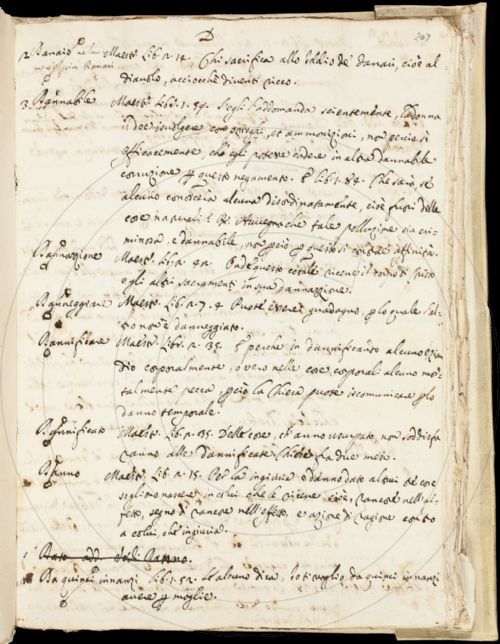 D
207
2. Danaio Maest. Lib. 2. 14. Chi sacrifica allo Iddio de' danari, cioè al
diavolo, acciocchè diventi ricco.
3. Dannabile Maest. Lib. 1. 59. Segli l'addomanda scientemente, la donna
il dee isvolgere con prieghi, et ammonizioni, non perciò sì
efficacemente, ch'egli potesse cadere in altra dannabile
corruzione questo negamento. Lib. 1. 84. Che sarà, se
alcuno conoscerà alcuna disordinatamente, cioè fuori delle
cose naturali? Avvegnache tale polluzione sia cri-
minosa, e dannabile, non perciò questo si affinità.
Dannazione Maest. Lib. 2. 42. Onde questo cotale riceve il
egli altri Sacramenti in sua dannazione.
Danneggiare Maest. Lib. 2. 7. 4 Puote essere guadagno, lo quale l'al-
tro non è danneggiato.
Dannificare Maest. Lib. 2. 35. E perchè in dannificando alcuno
dio corporalmente, overo nelle cose corporali alcuno mor-
talmente pecca, perciò la Chiesa puote iscomunicare lo
danno temporale.
Dannificato Maest. Lib. 2. 35. Delle cose, ch'anno usurpato, non soddisfa-
ranno alle dannificate Chiese la due metà.
Danno Maest. Lib. 2. 15. Per la ingiuria o danno dato altrui tre cose
sogliono nascere in colui che le riceve, cioè, rancore nell'af-
fetto, segno di rancore nell'effetto, e azione di ragione contro
a colui, che ingiuria.
Dato add. Danno.
Da quinci innanzi Lib. 1. 52. Se alcuno dica, Io ti voglio da quinci innanzi
avere moglie.